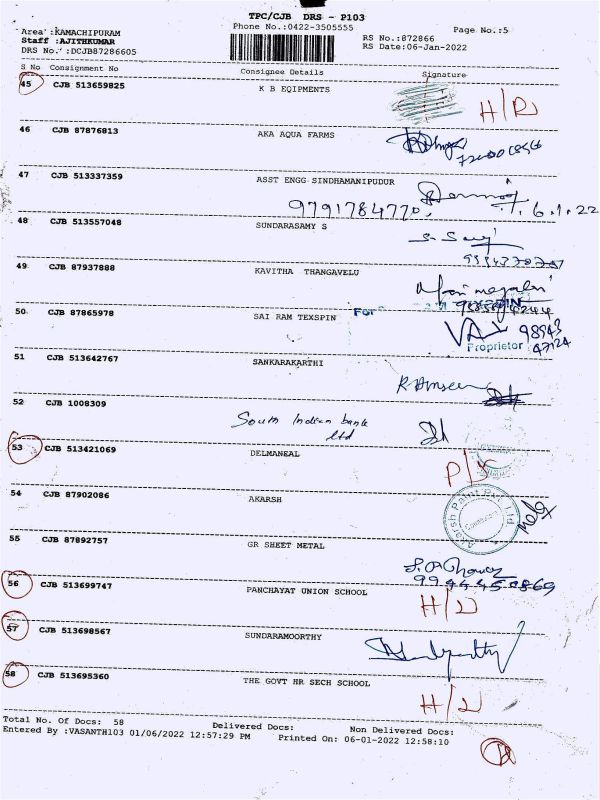 TPC/CJB DRS - P103
Phone No.:0422-3505555
Page No.:5
Area :KAMACHIPURAM
Staff :AJITHKUMAR
DRS No. :DCJB87286605
RS No.:872866
RS Date:06-Jan-2022
S No Consignment No Consignee Details Signature
45 CJB 513659825 K B EQIPMENTS
46 CJB 87876813 AKA AQUA FARMS
47 CJB 513337359 ASST ENGG SINDHAMANIPUDUR
9791784770, 6.1.22
48 CJB 513557048 SUNDARASAMY S
49 CJB 87937888 KAVITHA THANGAVELU
50 CJB 87865978 SAI RAM TEXSPIN
For
98943
Proprietor 47124
51 CJB 513642767 SANKARAKARTHI
52 CJB 1008309 South Indian bank
ltd
53 CJB 513421069 DELMANEAL
54 CJB 87902086 AKARSH
55 CJB 87892757 GR SHEET METAL
56 CJB 513699747 PANCHAYAT UNION SCHOOL
57 CJB 513698567 SUNDARAMOORTHY
58 CJB 513695360 THE GOVT HR SECH SCHOOL
Total No. Of Docs: 58 Delivered Docs: Non Delivered Docs:
Entered By :VASANTH103 01/06/2022 12:57:29 PM Printed On: 06-01-2022 12:58:10